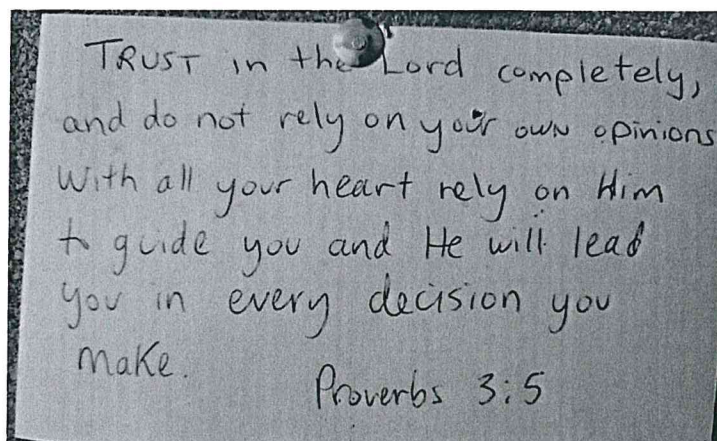 TRUST in the Lord completely,
and do not rely on your own opinions
With all your heart rely on Him
to guide you and He will lead
you in every decision you
make.
Proverbs 3:5